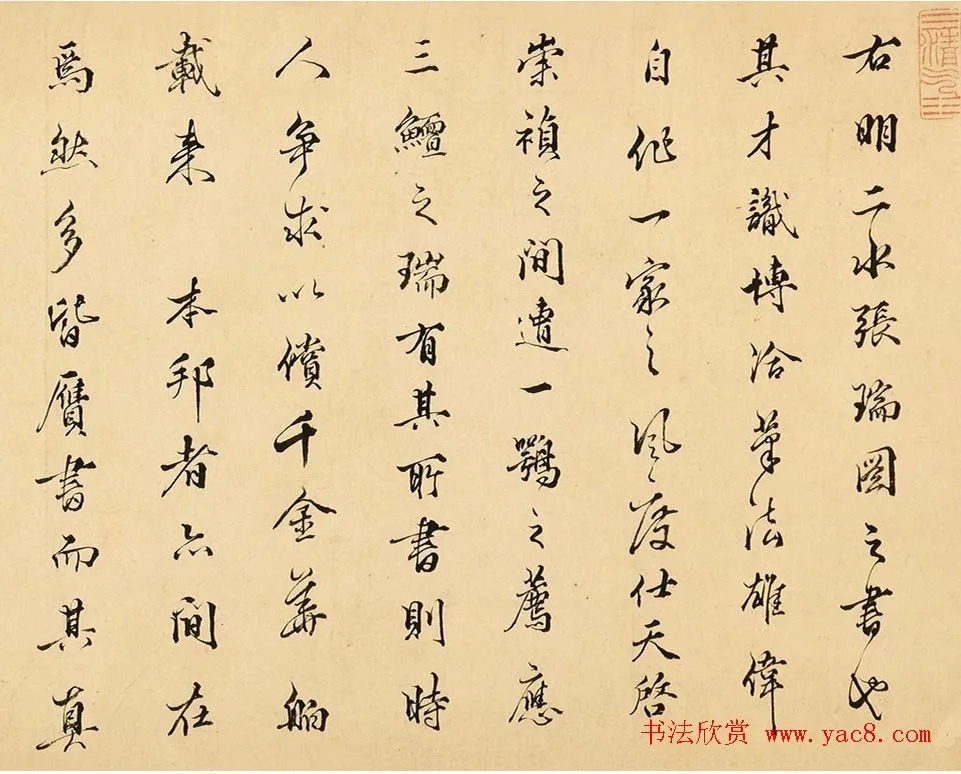 右明二水張瑞圖之書也
其才識博洽筆法雄偉
自作一家之風度仕天啓
崇禎之間遭一鶚之薦應
三鱣之瑞有其所書則時
人爭求以償千金華舶
載来 本邦者亦間在
焉然多皆贋書而其真
书法欣赏 www.yac8.com